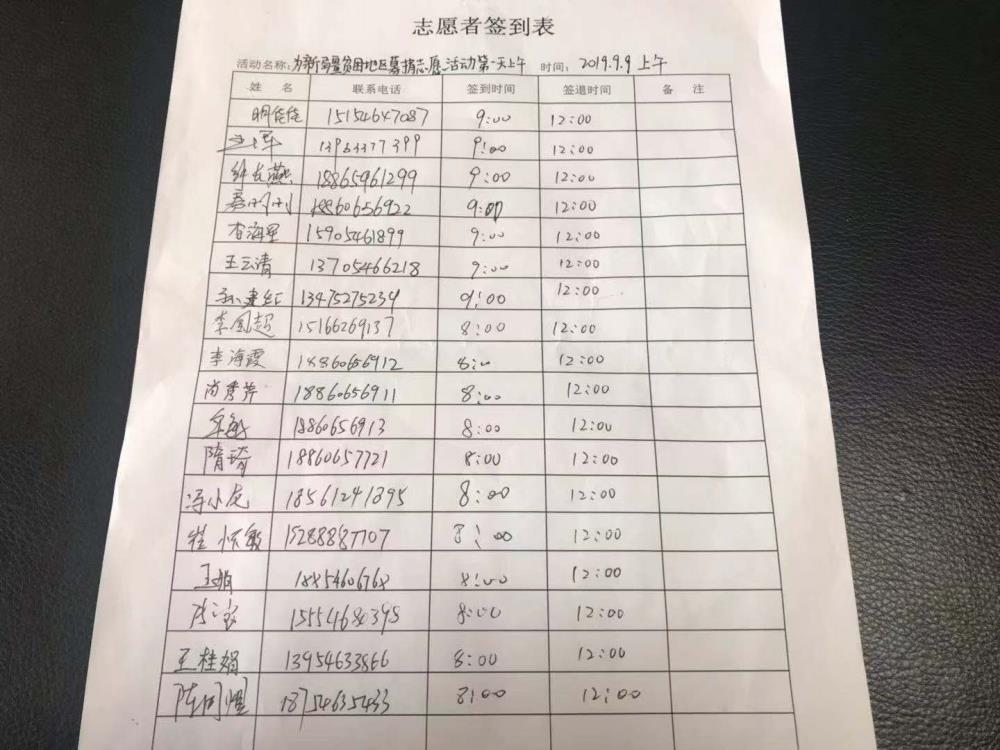 志愿者签到表
活动名称:为新疆贫困地区募捐志愿活动第一天上午 时间: 2019.9.9 上午
姓 名 联系电话 签到时间 签退时间 备 注
明佳佳 15154647087 9:00 12:00
13963377399 9:00 12:00
燕 18865961299 9:00 12:00
18860656922 9:00 12:00
杏海星 15905461899 9:00 12:00
王云清 13705466218 9:00 12:00
孙建红 13475275239 9:00 12:00
李凤超 15166269137 8:00 12:00
李海霞 18860656912 8:00 12:00
尚秀芹 18860656911 8:00 12:00
18860656913 8:00 12:00
隋琦 18860657721 8:00 12:00
冯小虎 18561241895 8:00 12:00
崔怀敏 15288887707 8:00 12:00
王娟 18854606768 8:00 12:00
15554680395 8:00 12:00
王桂娟 13954633866 8:00 12:00
陈 18754635433 8:00 12:00